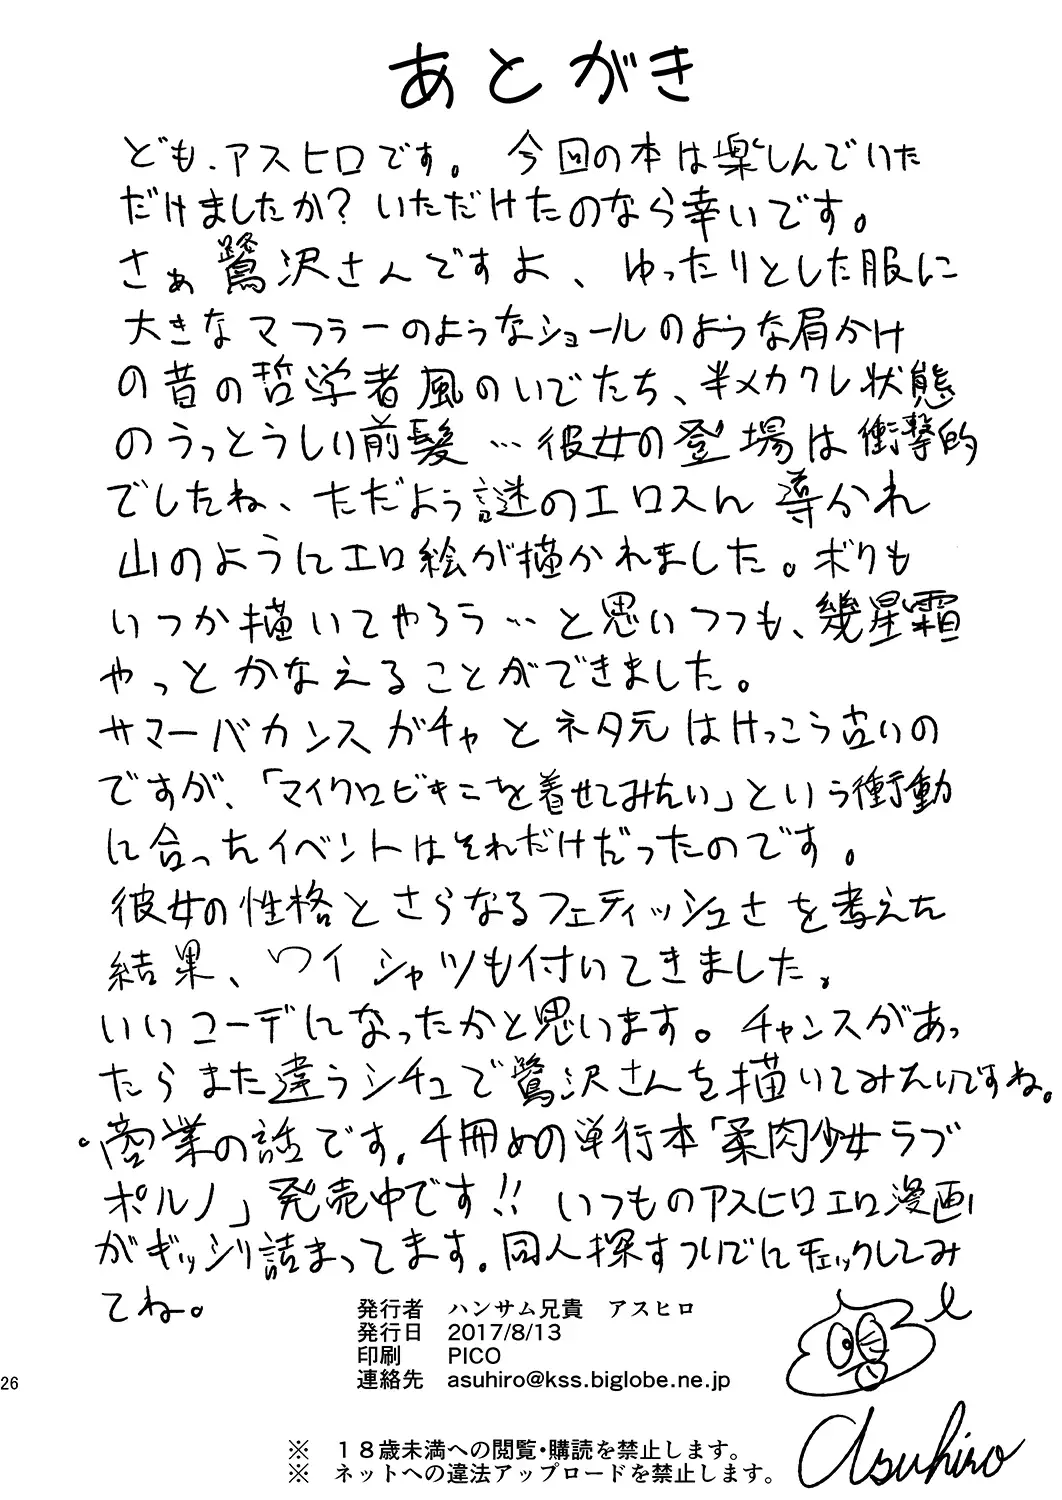 あとがき
ども.アスヒロです。今回の本は楽しんでいた
だけましたか?いただけたのなら幸いです。
さぁ鷺沢さんですよ、ゆったりとした服に
大きなマフラーのようなショールのような肩かけ
の昔の哲学者風のいでたち、半メカクレ状態
のうっとうしい前髪…彼女の登場は衝撃的
でしたね、ただよう謎のエロスん導かれ
山のようにエロ絵が描かれました。ボクも
いつか描いてやろう…と思いつつも、幾星霜
やっとかなえることができました。
サマーバカンスガチャとネタ元はけっこう古いの
ですが、「マイクロビキニを着せてみたい」という衝動
に合ったイベントはそれだけだったのです。
彼女の性格とさらなるフェティッシュさを考えた
結果、ワイシャツも付いてきました。
いいコーデになったかと思います。チャンスがあっ
たらまた違うシチュで鷺沢さんを描いてみたいですね。
・商業の話です.4冊めの単行本「柔肉少女ラブ
ポルノ」発売中です!!いつものアスヒロエロ漫画
がギッシリ詰まってます.同人探すつりでにチェックしてみ
てね。
発行者 ハンサム兄貴 アスヒロ
発行日 2017/8/13
印刷 PICO
連絡先 asuhiro@kss.biglobe.ne.jp
26
Asuhiro
※ 18歳未満への閲覧・購読を禁止します。
※ ネットへの違法アップロードを禁止します。